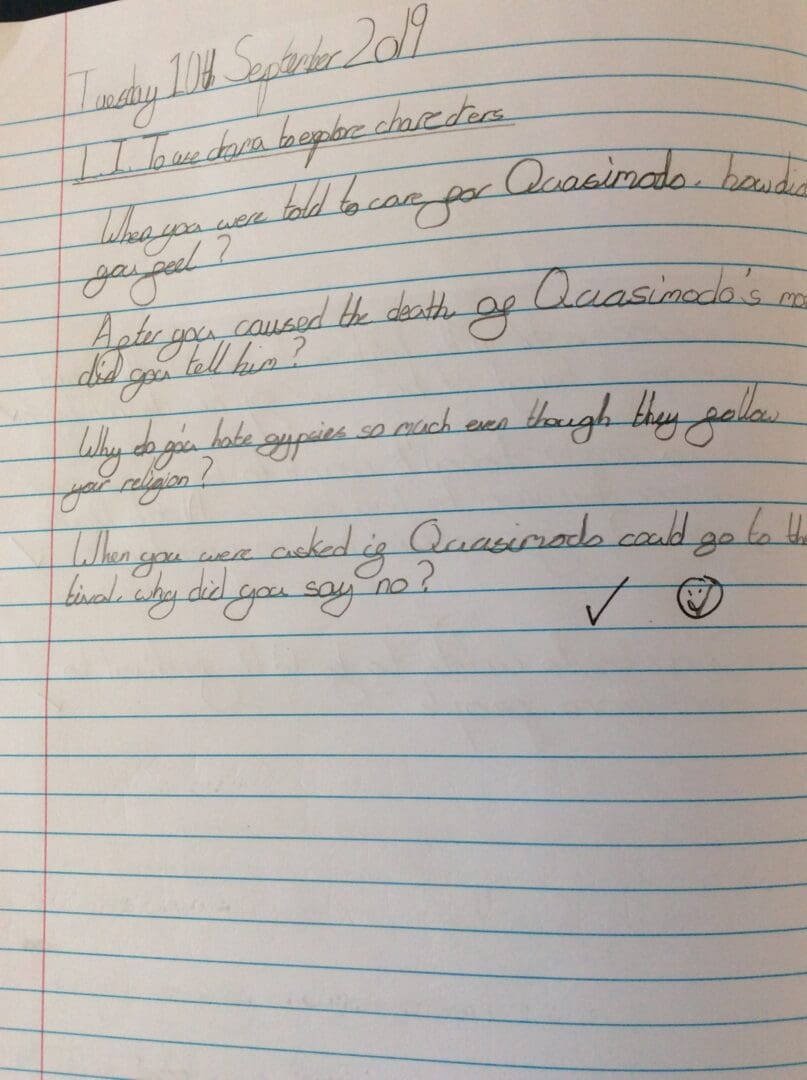 Tuesday 10th September 2019
L.I. To use drama to explore charecters
When you were told to care for Quasimodo. how did
you feel?
After you caused the death of Quasimodo's
did you tell him?
Why do you hate gypsies so much even though they follow
your religion?
When you were asked if Quasimodo could go to the
tival. why did you say no?